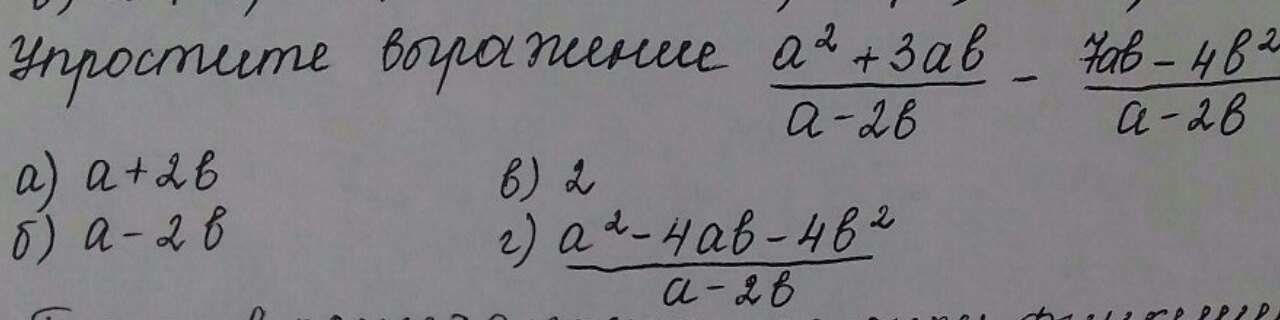 Упростите выражение (a² + 3ab)/(a - 2b) - (7ab - 4b²)/(a - 2b)
а) a + 2b
в) 2
б) a - 2b
г) (a² - 4ab - 4b²)/(a - 2b)